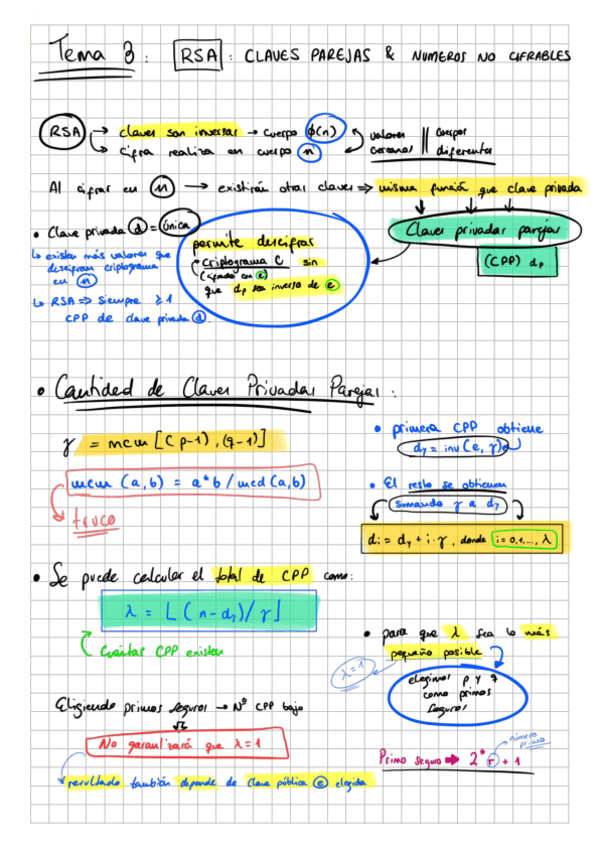 Tema 3: RSA: CLAVES PAREJAS & NUMEROS NO CIFRABLES
RSA → claves son inversas → cuerpo ϕ(n)
→ cifra realiza en cuerpo n
valores cercanos || cuerpos diferentes
Al cifrar en n → existirán otras claves ⇒ misma función que clave privada
Claves privadas parejas
(CPP) dp
• Clave privada d = única
↳ existen más valores que
descifran criptograma
en n
↳ RSA ⇒ siempre ≥ 1
CPP de clave privada d
permite descifrar
criptograma C sin
(cifrado con e)
que dp sea inverso de e
• Cantidad de Claves Privadas Parejas:
γ = mcm [(p-1), (q-1)]
mcm (a,b) = a*b / mcd (a,b)
↳ truco
• primera CPP obtiene
dγ = inv (e, γ)
• El resto se obtienen
sumando γ a dγ
di = dγ + i·γ, donde i = 0,1,..., λ
• Se puede calcular el total de CPP como:
λ = ⌊(n-dγ)/γ⌋
Cuántas CPP existen
• para que λ sea lo más
pequeño posible
λ=1
elegimos p y q
como primos
seguros
Eligiendo primos seguros → Nº CPP bajo
No garantizará que λ=1
↳ resultado también depende de clave pública e elegida
Primo seguro → 2*r + 1
número
primo